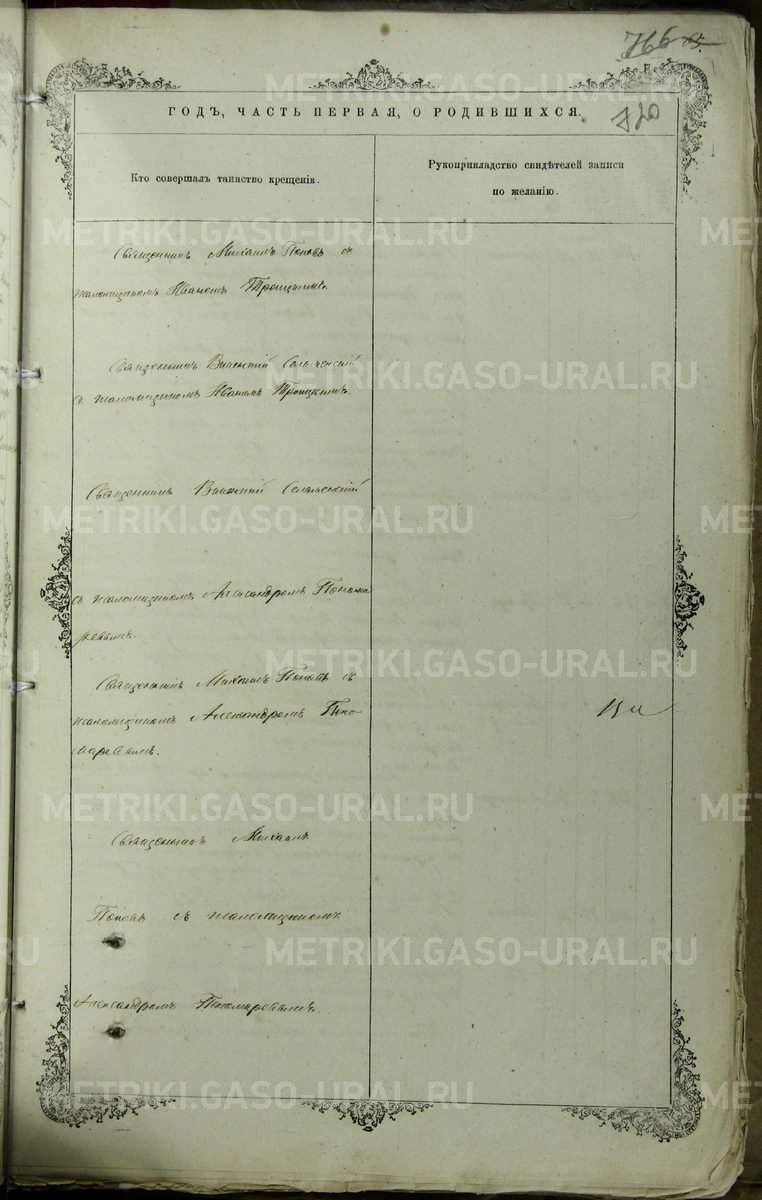 766
720
ГОДЪ, ЧАСТЬ ПЕРВАЯ, О РОДИВШИХСЯ.
Кто совершалъ таинство крещенія.
Рукоприкладство свидѣтелей записи
по желанію.
Священникъ Михаилъ Поповъ съ
псаломщикомъ Иваномъ Троицкимъ.
Священникъ Викентій
съ псаломщикомъ Иваномъ Троицкимъ.
Священникъ Викентій
съ псаломщикомъ Александромъ Понома
ревымъ.
Священникъ Михаилъ Поповъ съ
псаломщикомъ Александромъ Поно
маревымъ.
Священникъ Михаилъ
Поповъ съ псаломщикомъ
Александромъ Пономаревымъ.
METRIKI.GASO-URAL.RU